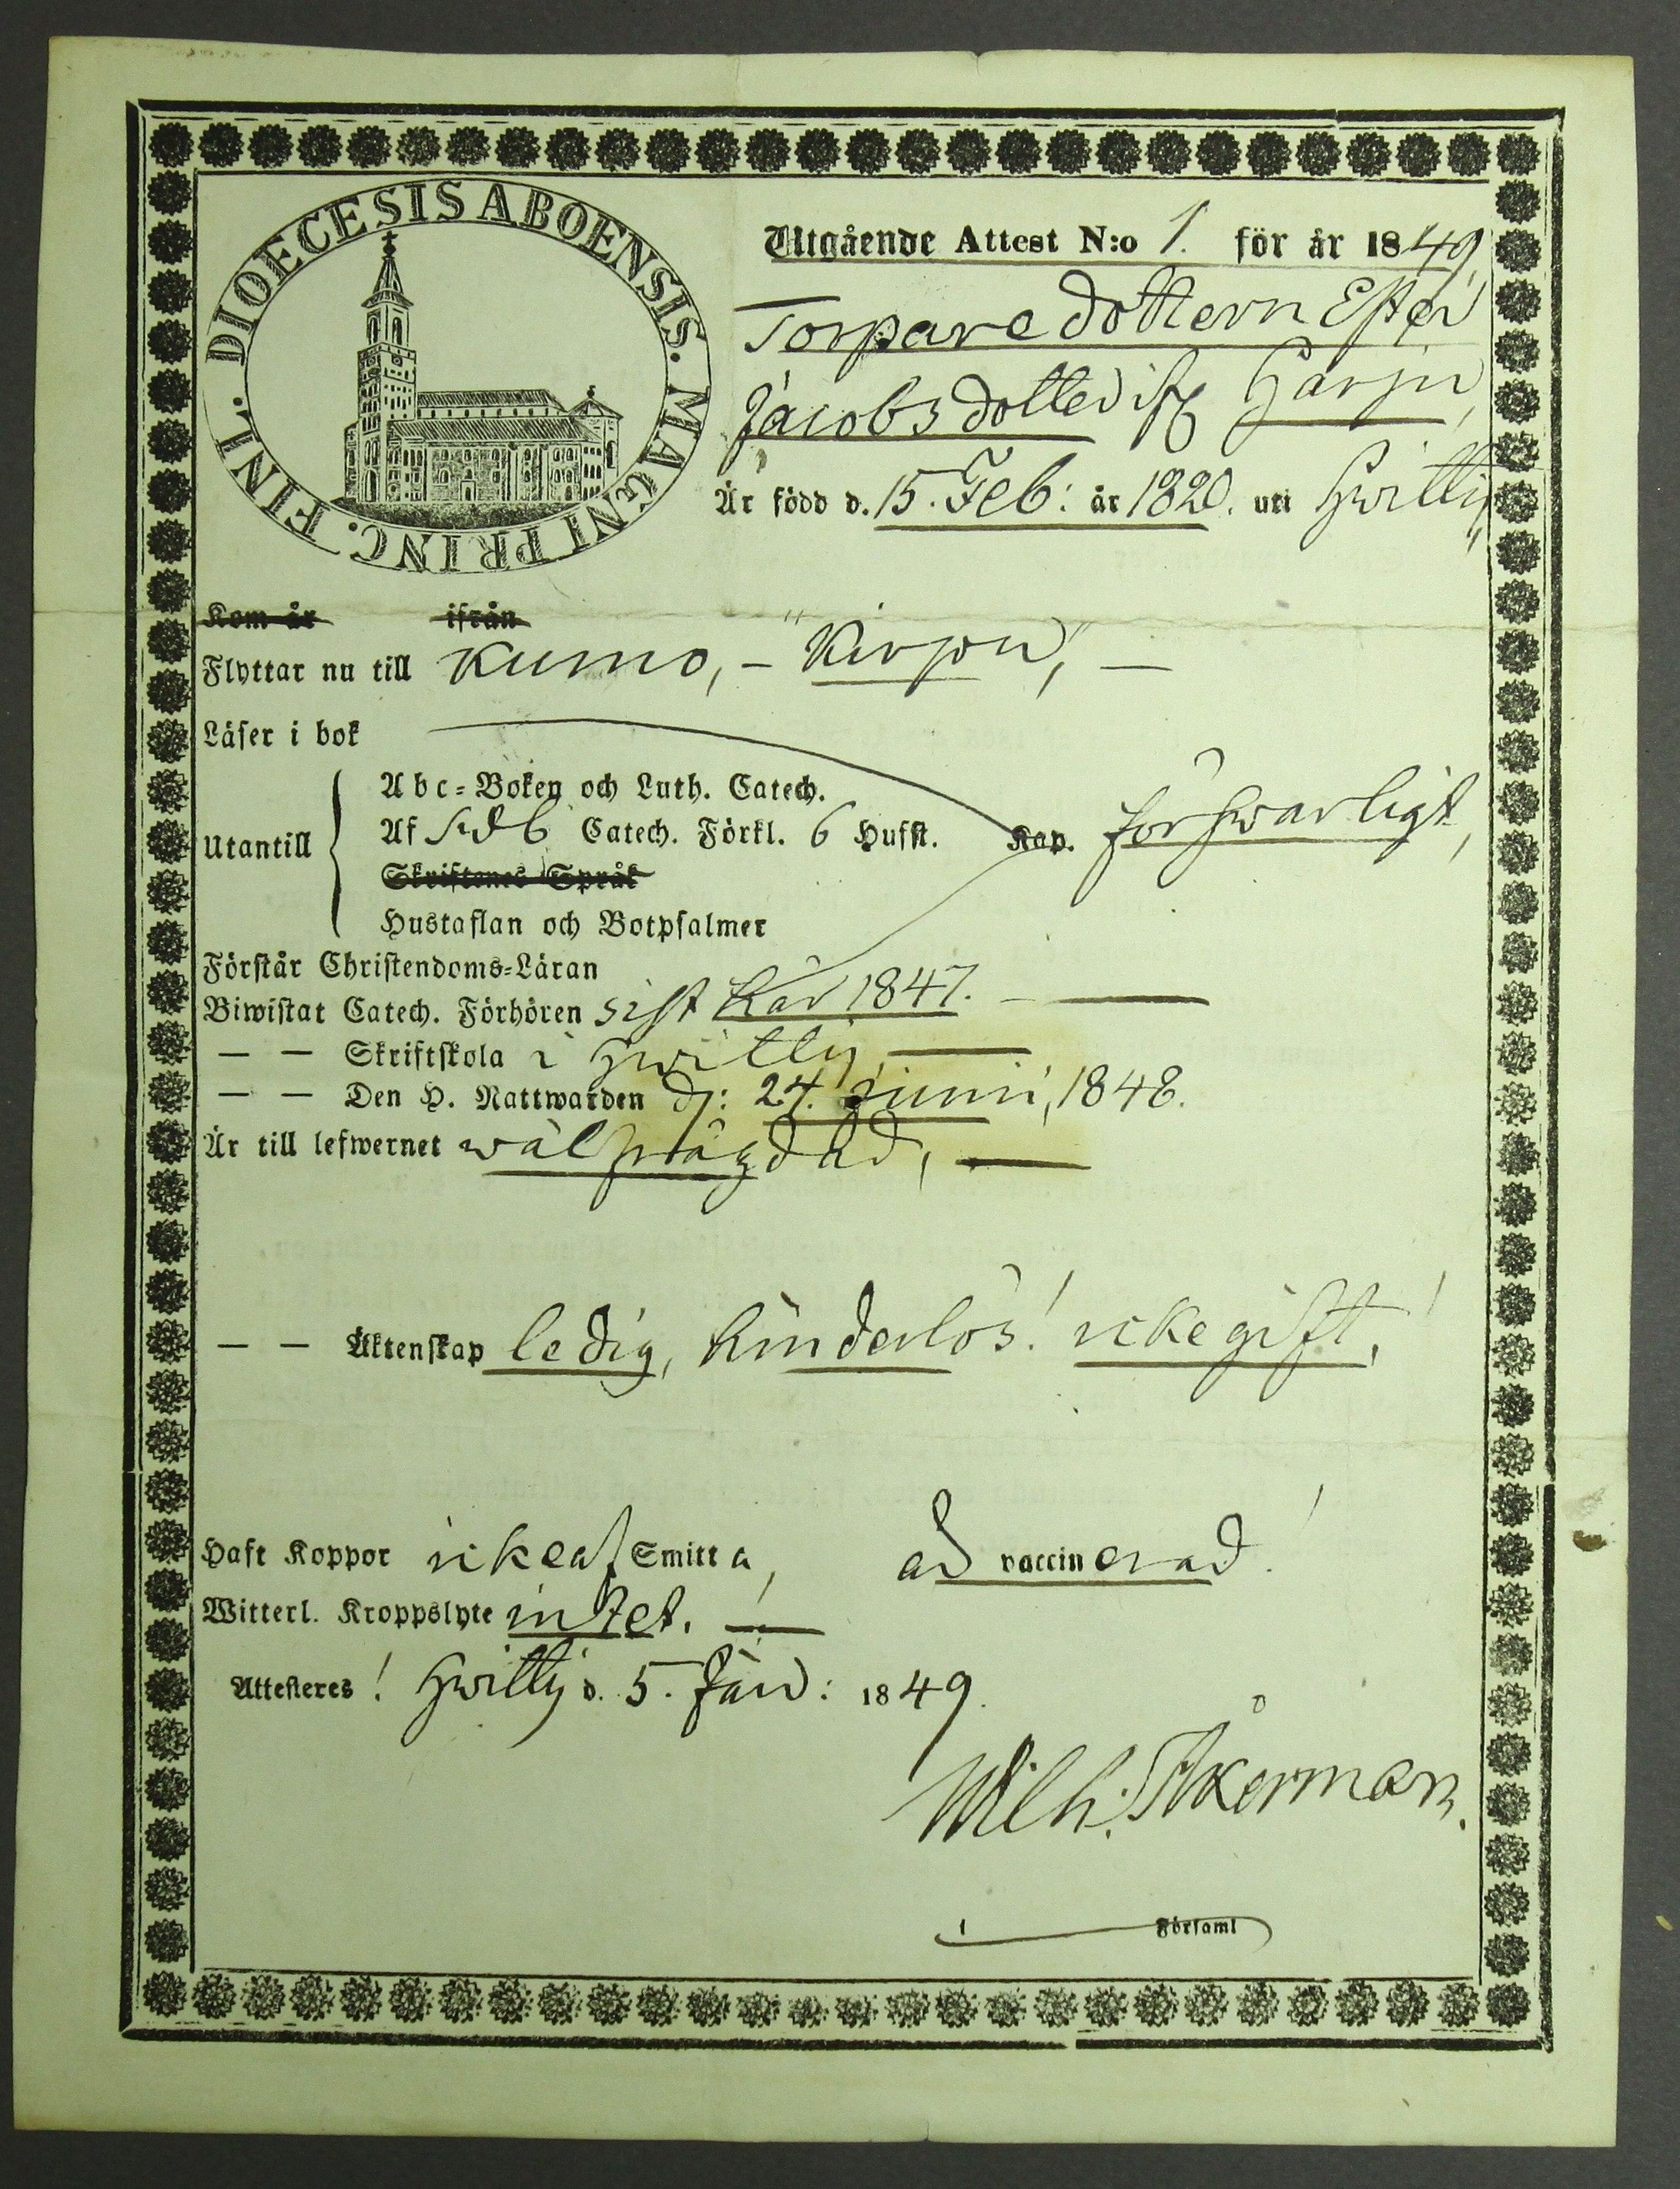 DIOECESIS ABOENSIS. MAGNI PRINC. FINL.
Utgående Attest N:o 1. för år 1849
Torparedottern Ester
Jacobsdotter ifr Harju,
Är född d. 15. Feb: år 1820. uti Hwittis
Kom år ifrån
Flyttar nu till Kumo, – "Karjou", –
Läser i bok
Abc-Boken och Luth. Catech.
Utantill Af Catech. Förkl. 6 Hufst. Kap. förswarligt,
Skriftenes Språk
Hustaflan och Botpsalmer
Förstår Christendoms-Läran
Biwistat Catech. Förhören sist här 1847. –
— — Skriftskola i Hwittis, —
— — Den H. Nattwarden d: 24. Junii, 1848.
Är till lefwernet wälfrägdad, —
— — Äktenskap ledig, hinderlös! icke gift!
Haft Koppor icke af Smitta, vaccinerad!
Witterl. Kroppslyte intet. —
Attesteres! Hwittis d. 5. Jan: 1849.
Wilh. Åkerman.
i Församl